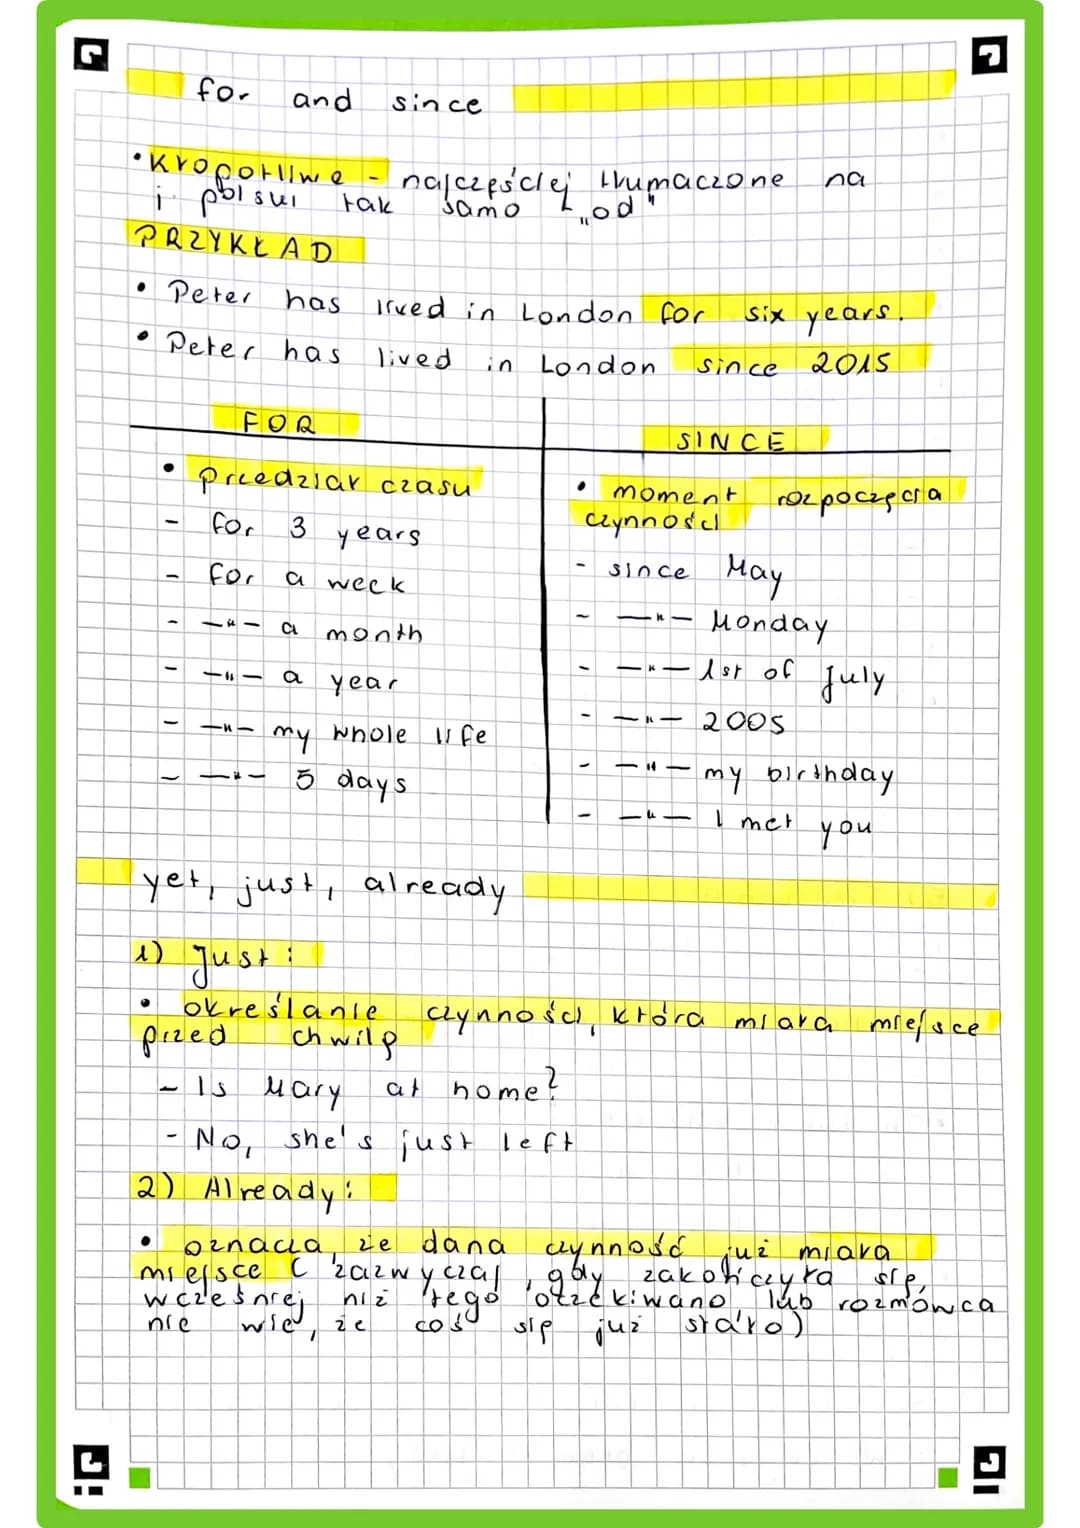 for and since
• Kropotliwe - najczęściej tłumaczone na
j. polski tak samo "od"
PRZYKŁAD
• Peter has lived in London for six years.
• Peter has lived in London since 2015
FOR
SINCE
• przedział czasu
- for 3 years
- for a week
- —"— a month
- —"— a year
- —"— my whole life
- —"— 5 days
• moment rozpoczęcia
czynności
- since May
- —"— Monday
- —"— 1st of July
- —"— 2005
- —"— my birthday
- —"— I met you
yet, just, already
1) Just:
• określanie czynności, która miała miejsce
przed chwilą
- Is Mary at home?
- No, she's just left
2) Already:
• oznacza, że dana czynność już miała
miejsce (zazwyczaj, gdy zakończyła się,
wcześniej niż tego oczekiwano lub rozmówca
nie wie, że coś się już stało)